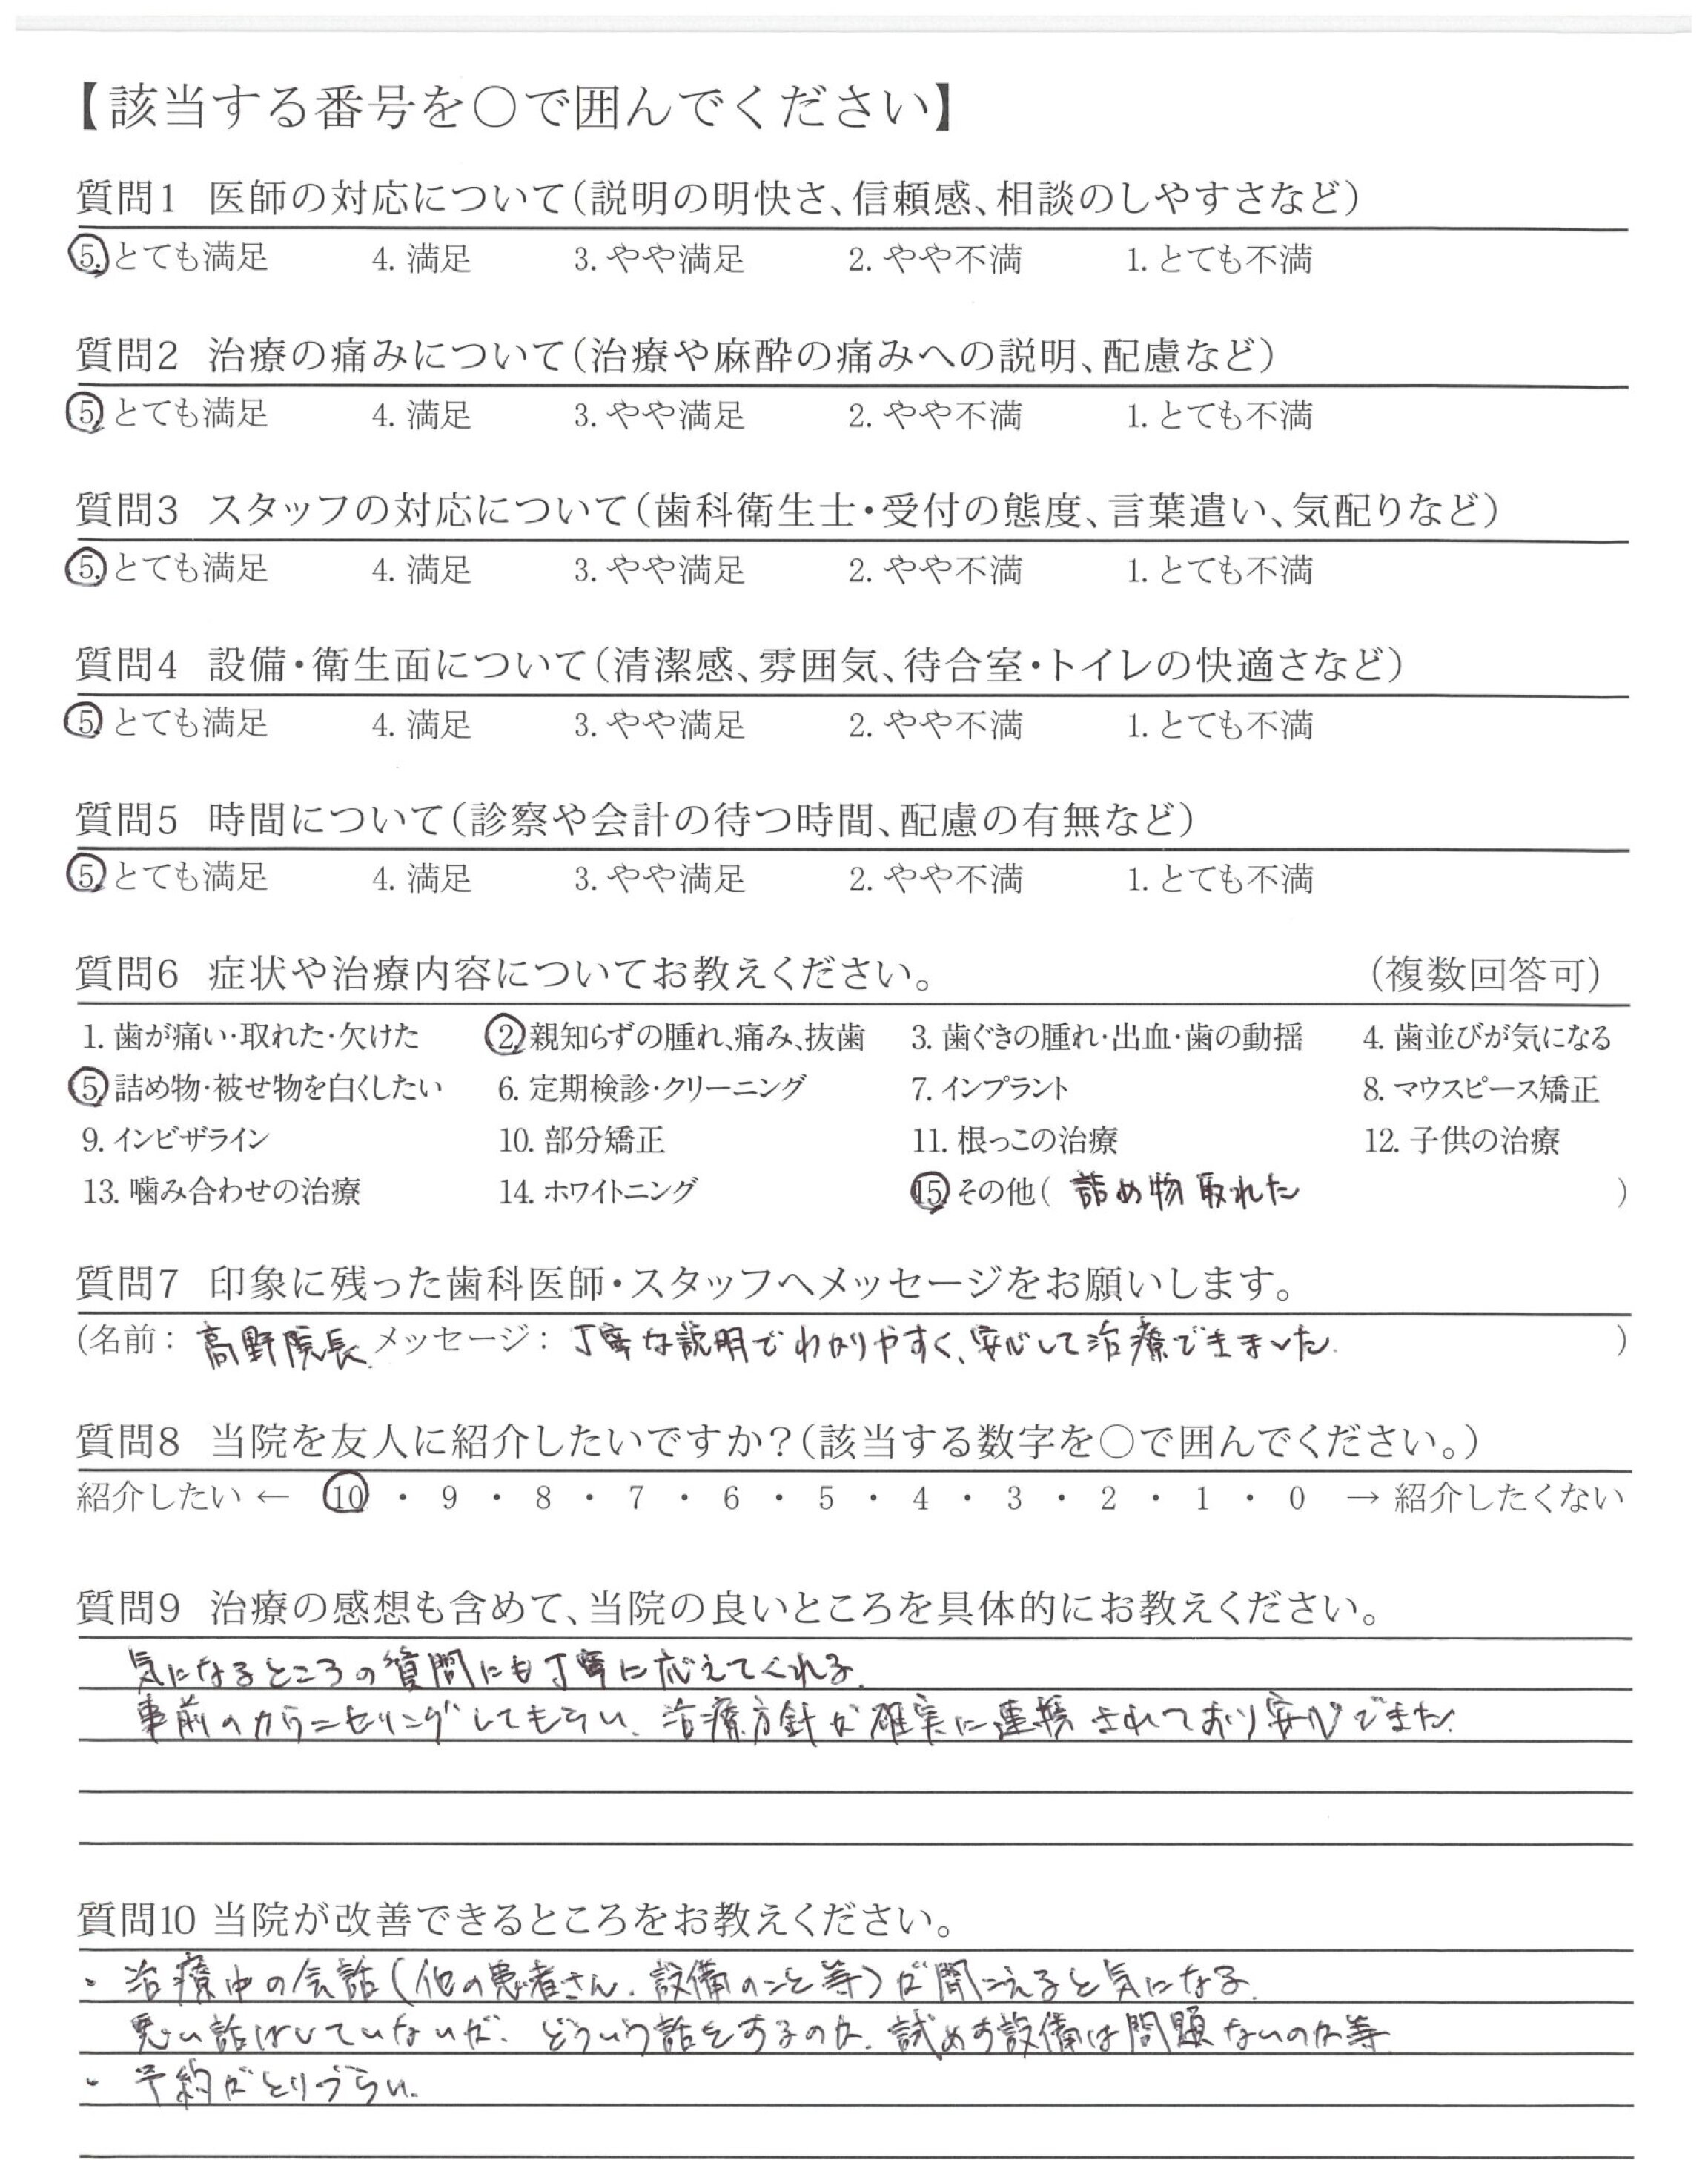 【該当する番号を○で囲んでください】
質問1 医師の対応について(説明の明快さ、信頼感、相談のしやすさなど)
5. とても満足 4. 満足 3. やや満足 2. やや不満 1. とても不満
質問2 治療の痛みについて(治療や麻酔の痛みへの説明、配慮など)
5. とても満足 4. 満足 3. やや満足 2. やや不満 1. とても不満
質問3 スタッフの対応について(歯科衛生士・受付の態度、言葉遣い、気配りなど)
5. とても満足 4. 満足 3. やや満足 2. やや不満 1. とても不満
質問4 設備・衛生面について(清潔感、雰囲気、待合室・トイレの快適さなど)
5. とても満足 4. 満足 3. やや満足 2. やや不満 1. とても不満
質問5 時間について(診察や会計の待つ時間、配慮の有無など)
5. とても満足 4. 満足 3. やや満足 2. やや不満 1. とても不満
質問6 症状や治療内容についてお教えください。 (複数回答可)
1. 歯が痛い・取れた・欠けた 2. 親知らずの腫れ、痛み、抜歯 3. 歯ぐきの腫れ・出血・歯の動揺 4. 歯並びが気になる
5. 詰め物・被せ物を白くしたい 6. 定期検診・クリーニング 7. インプラント 8. マウスピース矯正
9. インビザライン 10. 部分矯正 11. 根っこの治療 12. 子供の治療
13. 噛み合わせの治療 14. ホワイトニング 15. その他( 詰め物取れた )
質問7 印象に残った歯科医師・スタッフへメッセージをお願いします。
(名前: 高野院長. メッセージ: 丁寧な説明でわかりやすく、安心して治療できました. )
質問8 当院を友人に紹介したいですか?(該当する数字を○で囲んでください。)
紹介したい ← 10 ・ 9 ・ 8 ・ 7 ・ 6 ・ 5 ・ 4 ・ 3 ・ 2 ・ 1 ・ 0 → 紹介したくない
質問9 治療の感想も含めて、当院の良いところを具体的にお教えください。
気になるところの質問にも丁寧に応えてくれる.
事前のカウンセリングしてもらい、治療方針が確実に連携されており安心できた.
質問10 当院が改善できるところをお教えください。
・治療中の会話(他の患者さん、設備のこと等)が聞こえると気になる.
悪い話はしていないが、どういう話をするのか、設備は問題ないのか等
・予約がとりづらい.